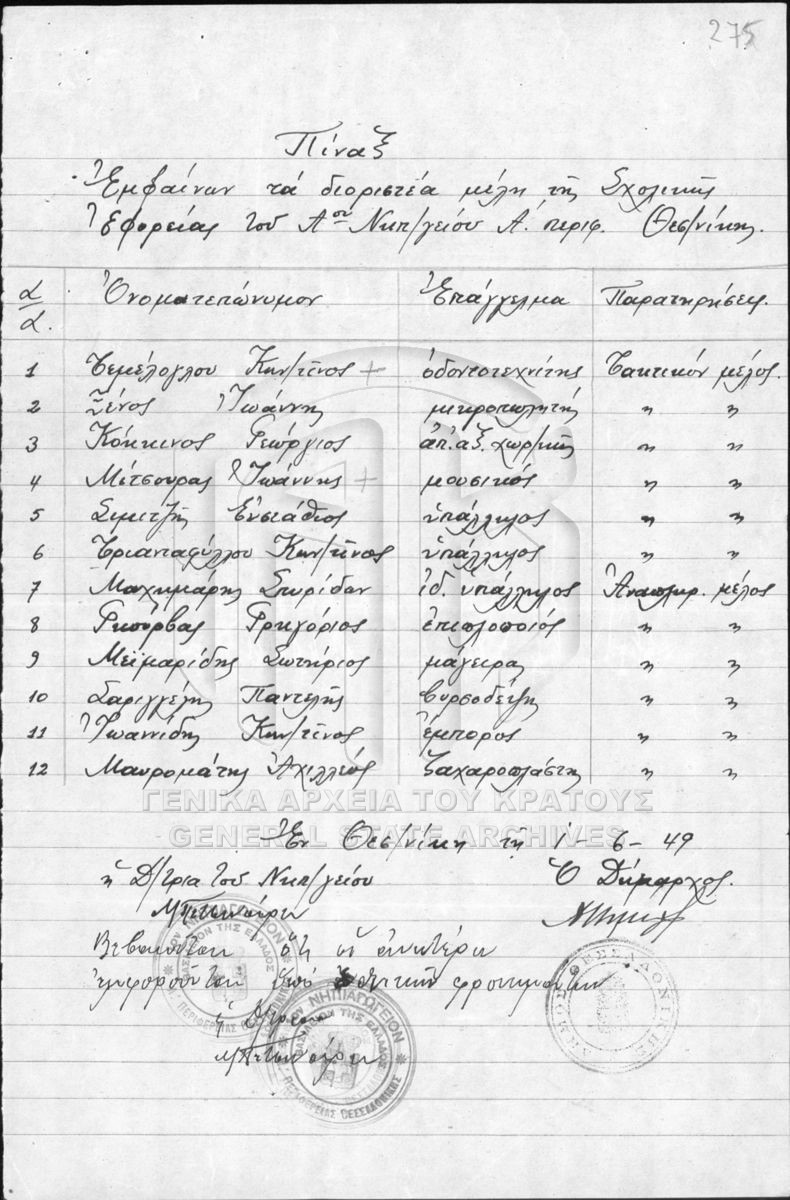 275
Πίναξ
Ἐμφαίνων τά διοριστέα μέλη τῆς Σχολικῆς
Ἐφορείας τοῦ Α΄ου Νηπ/γείου Α΄. περιφ. Θεσ/νίκης.
α/α. Ὀνοματεπώνυμον Ἐπάγγελμα Παρατηρήσεις
1 Τεμέλογλου Κων/τῖνος + ὀδοντοτεχνίτης Τακτικόν μέλος.
2 Ξένος Ἰωάννης μικροπωλητής " "
3 Κόκκινος Γεώργιος ἀπ. ἀξ. χωρ/κῆς " "
4 Μέτσουρας Ἰωάννης + μουσικός " "
5 Σιμιτζῆς Εὐστάθιος ὑπάλληλος " "
6 Τριανταφύλλου Κων/τῖνος ὑπάλληλος " "
7 Μαχημάρης Σπυρίδων ἰδ. ὑπάλληλος Ἀναπληρ. μέλος
8 Γκιούρβας Γρηγόριος ἐπιπλοποιός " "
9 Μεϊμαρίδης Σωτήριος μάγειρας " "
10 Σαριγγέλης Παντελῆς βυρσοδέψης " "
11 Ἰωαννίδης Κων/τῖνος ἔμπορος " "
12 Μαυρομάτης Ἀχιλλεύς ζαχαροπλάστης " "
ΓΕΝΙΚΑ ΑΡΧΕΙΑ ΤΟΥ ΚΡΑΤΟΥΣ
GENERAL STATE ARCHIVES
Ἐν Θεσ/νίκη τῃ 1-6-49
ἡ Δ/τρια τοῦ Νηπ/γείου Ὁ Δήμαρχος.
Βεβαιοῦται ὅτι οἱ ἀνωτέρω
ἐμφοροῦνται ὑπό ἐθνικῶν φρονημάτων
ἡ Δ/τρια
ΝΗΠΙΑΓΩΓΕΙΟΝ
ΒΑΣΙΛΕΙΟΝ ΤΗΣ ΕΛΛΑΔΟΣ
ΠΕΡΙΦΕΡΕΙΑΣ ΘΕΣΣΑΛΟΝΙΚΗΣ
ΝΗΠΙΑΓΩΓΕΙΟΝ
ΒΑΣΙΛΕΙΟΝ ΤΗΣ ΕΛΛΑΔΟΣ
ΠΕΡΙΦΕΡΕΙΑΣ ΘΕΣΣΑΛΟΝΙΚΗΣ
ΔΗΜΟΣ ΘΕΣΣΑΛΟΝΙΚΗΣ